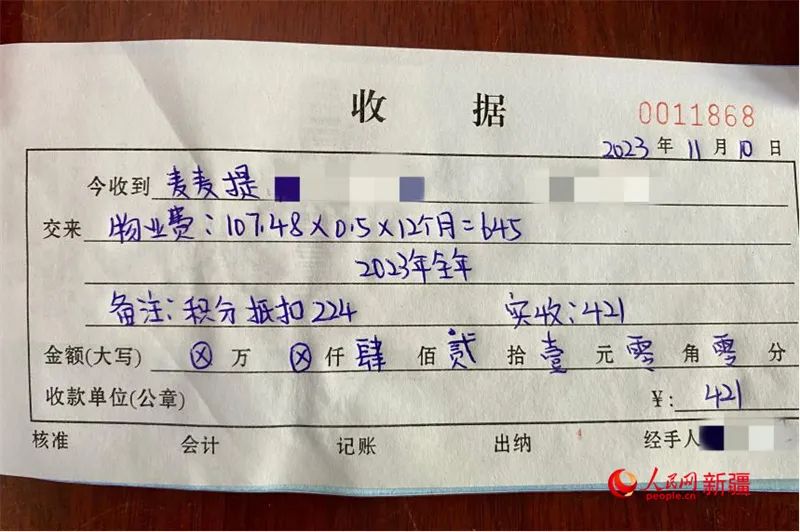 收 据
0011868
2023 年 11 月 10 日
今收到 麦麦提
交来 物业费：107.48×0.5×12个月=645
2023年全年
备注：积分抵扣224 实收：421
金额(大写) ⊗ 万 ⊗ 仟 肆 佰 贰 拾 壹 元 零 角 零 分
收款单位(公章) ¥: 421
核准 会计 记账 出纳 经手人
人民网 新疆
people.cn